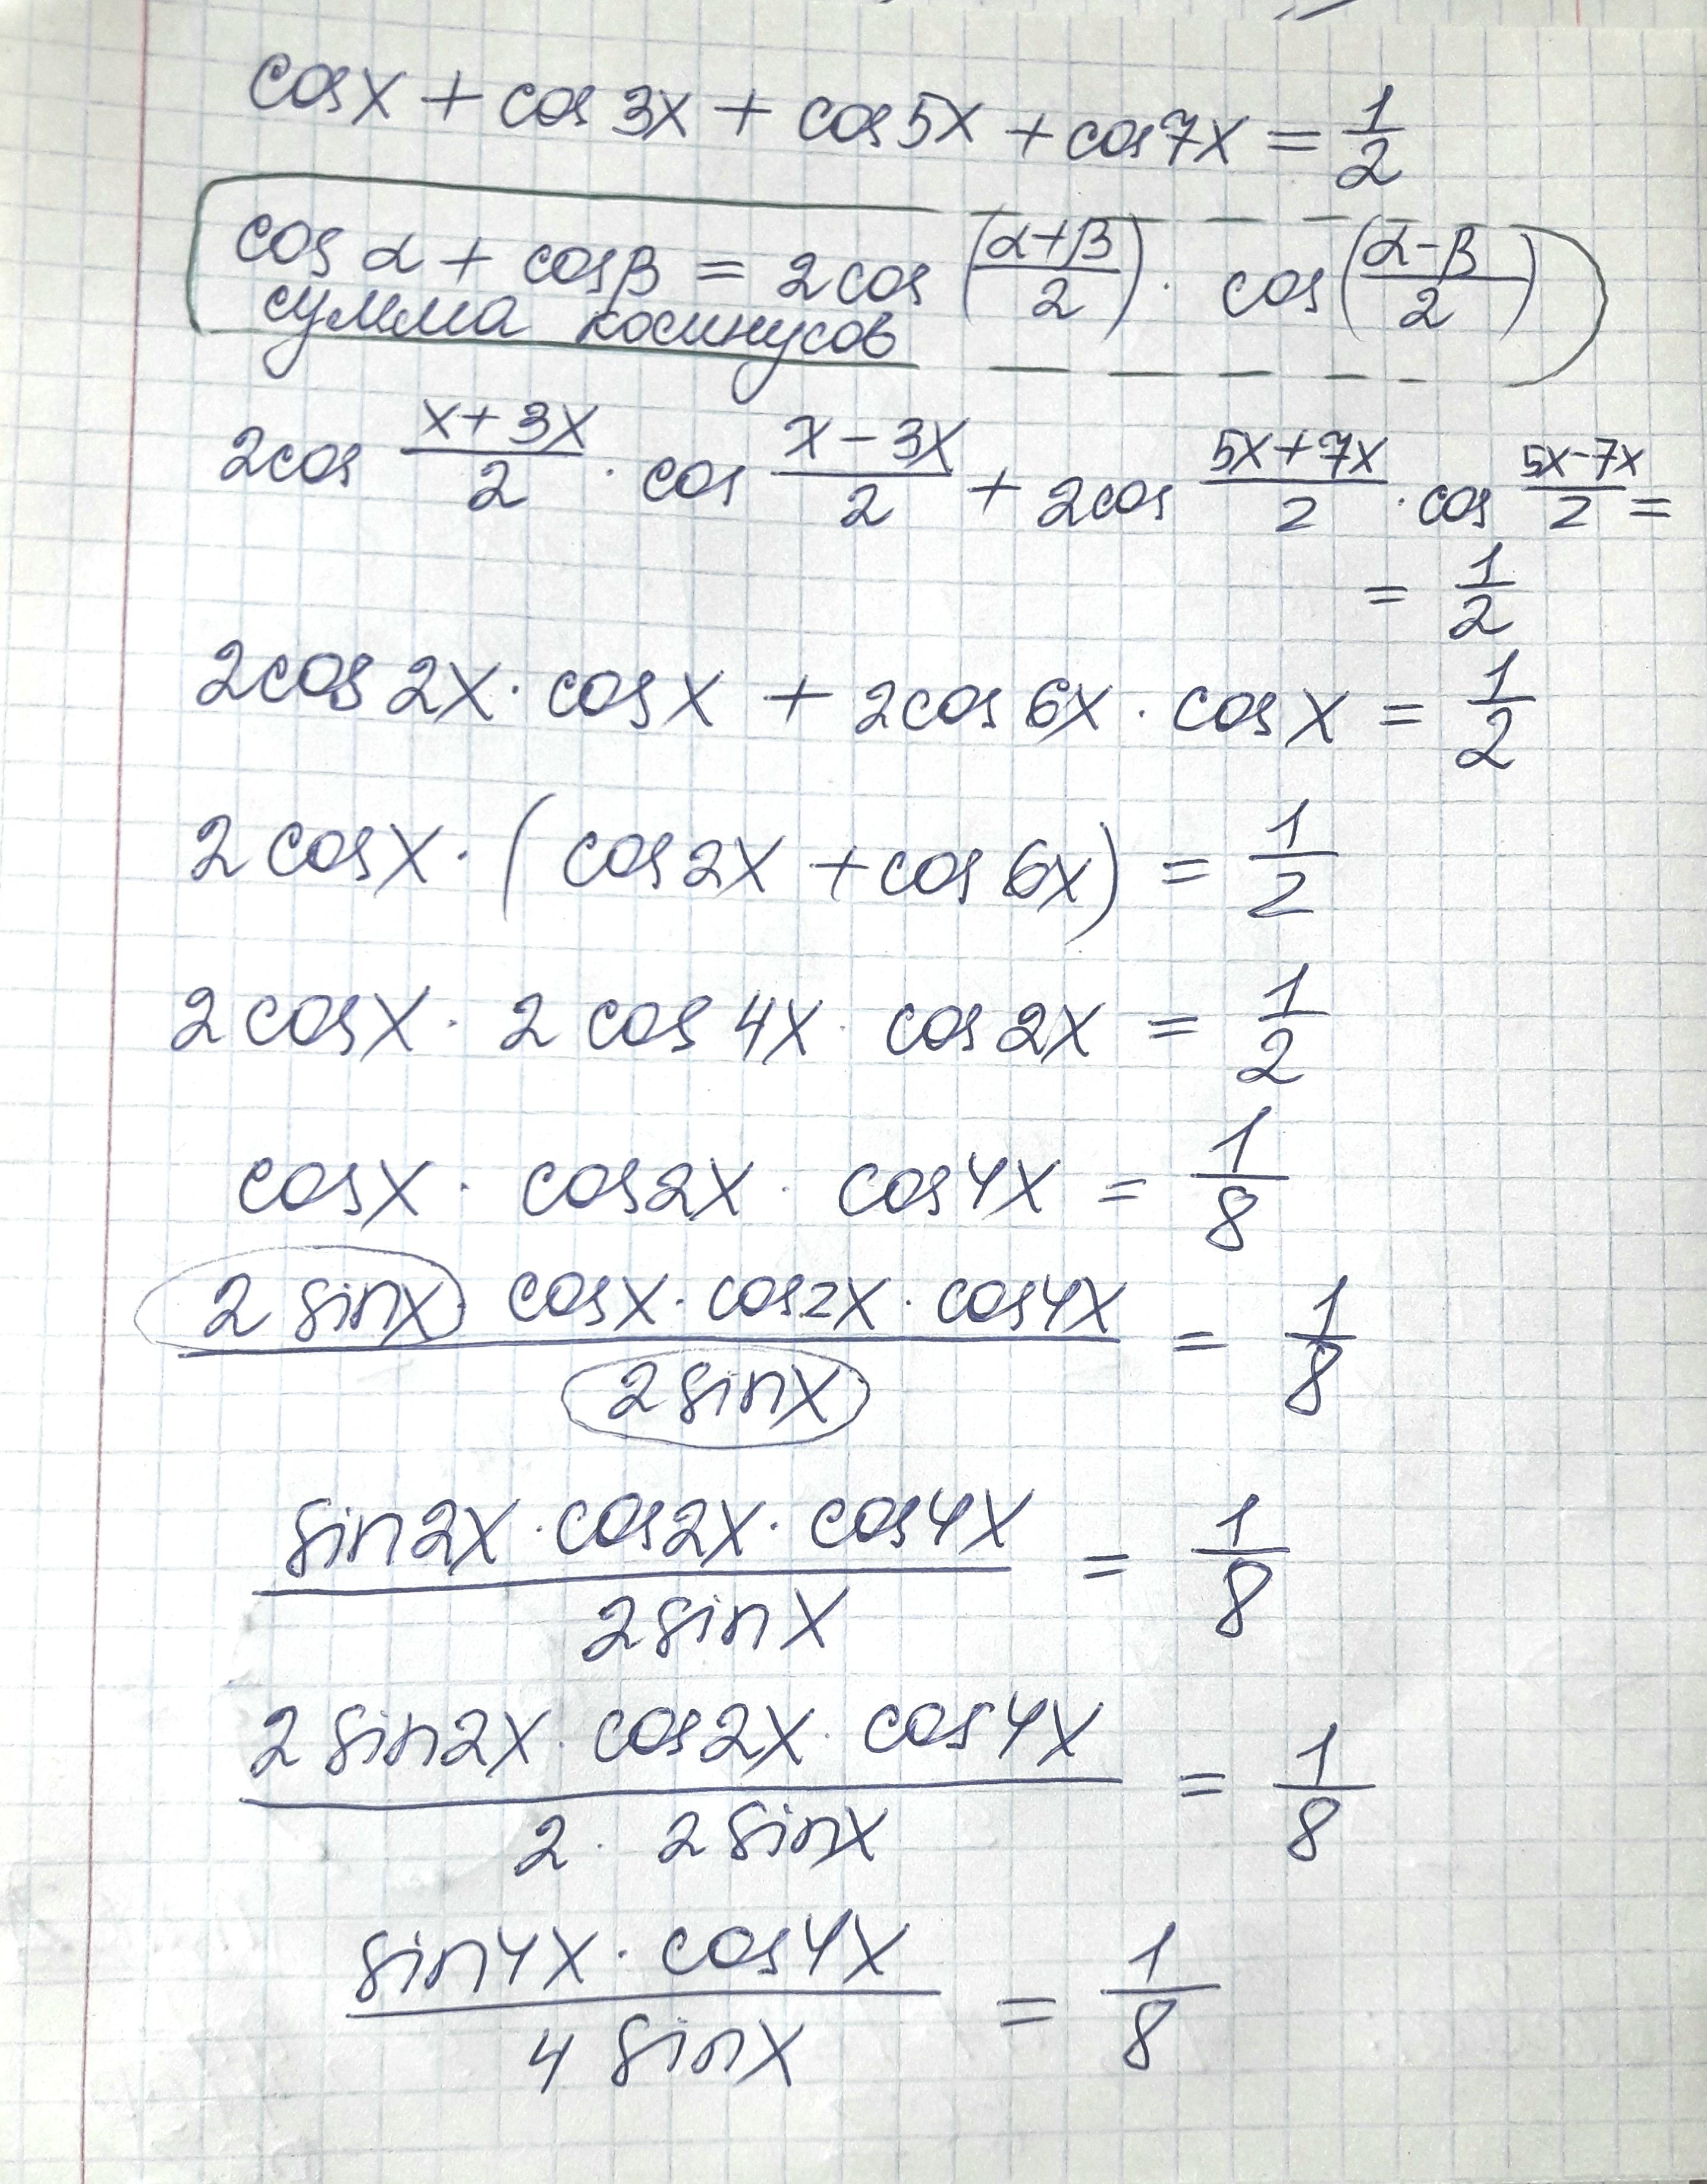 cosx + cos3x + cos5x + cos7x = 1/2
cosα + cosβ = 2cos((α+β)/2) · cos((α-β)/2)
сумма косинусов
2cos (x+3x)/2 · cos (x-3x)/2 + 2cos (5x+7x)/2 · cos (5x-7x)/2 =
= 1/2
2cos2x · cosx + 2cos6x · cosx = 1/2
2cosx · (cos2x + cos6x) = 1/2
2cosx · 2cos4x · cos2x = 1/2
cosx · cos2x · cos4x = 1/8
(2sinx · cosx · cos2x · cos4x)/(2sinx) = 1/8
(sin2x · cos2x · cos4x)/(2sinx) = 1/8
(2sin2x · cos2x · cos4x)/(2 · 2sinx) = 1/8
(sin4x · cos4x)/(4sinx) = 1/8